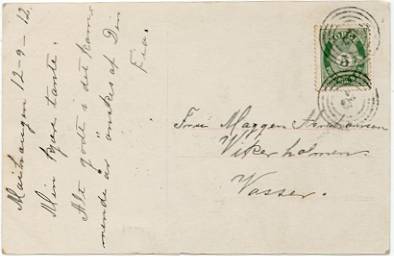 Maihaugen 12-9-12.
Min kjære tante.
Alt godt i det kom
mende år ønskes af Din
Fia.
5
Fru Maggen
Vikerholmen.
Vasser.